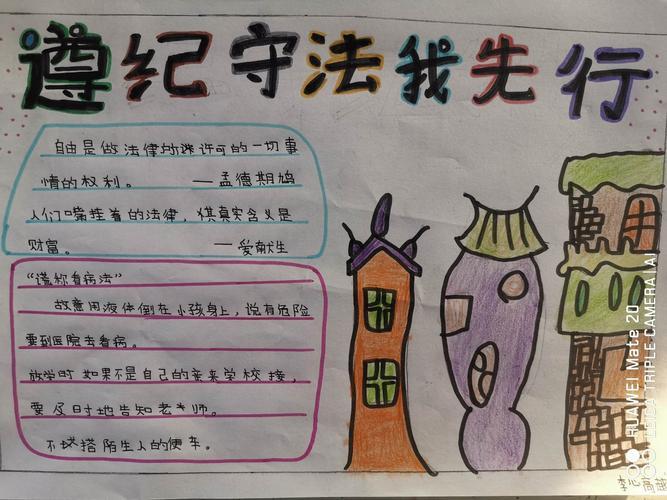 遵纪守法我先行
自由是做法律所许可的一切事
情的权利。 —孟德斯鸠
人们嘴挂着的法律，其真实含义是
财富。 —爱献生
“谎称看病法”
故意用液体倒在小孩身上，说有危险
要到医院去看病。
放学时如果不是自己的亲来学校接，
要及时地告知老师。
不搭陌生人的便车。
HUAWEI Mate 20
LEICA TRIPLE CAMERA | AI